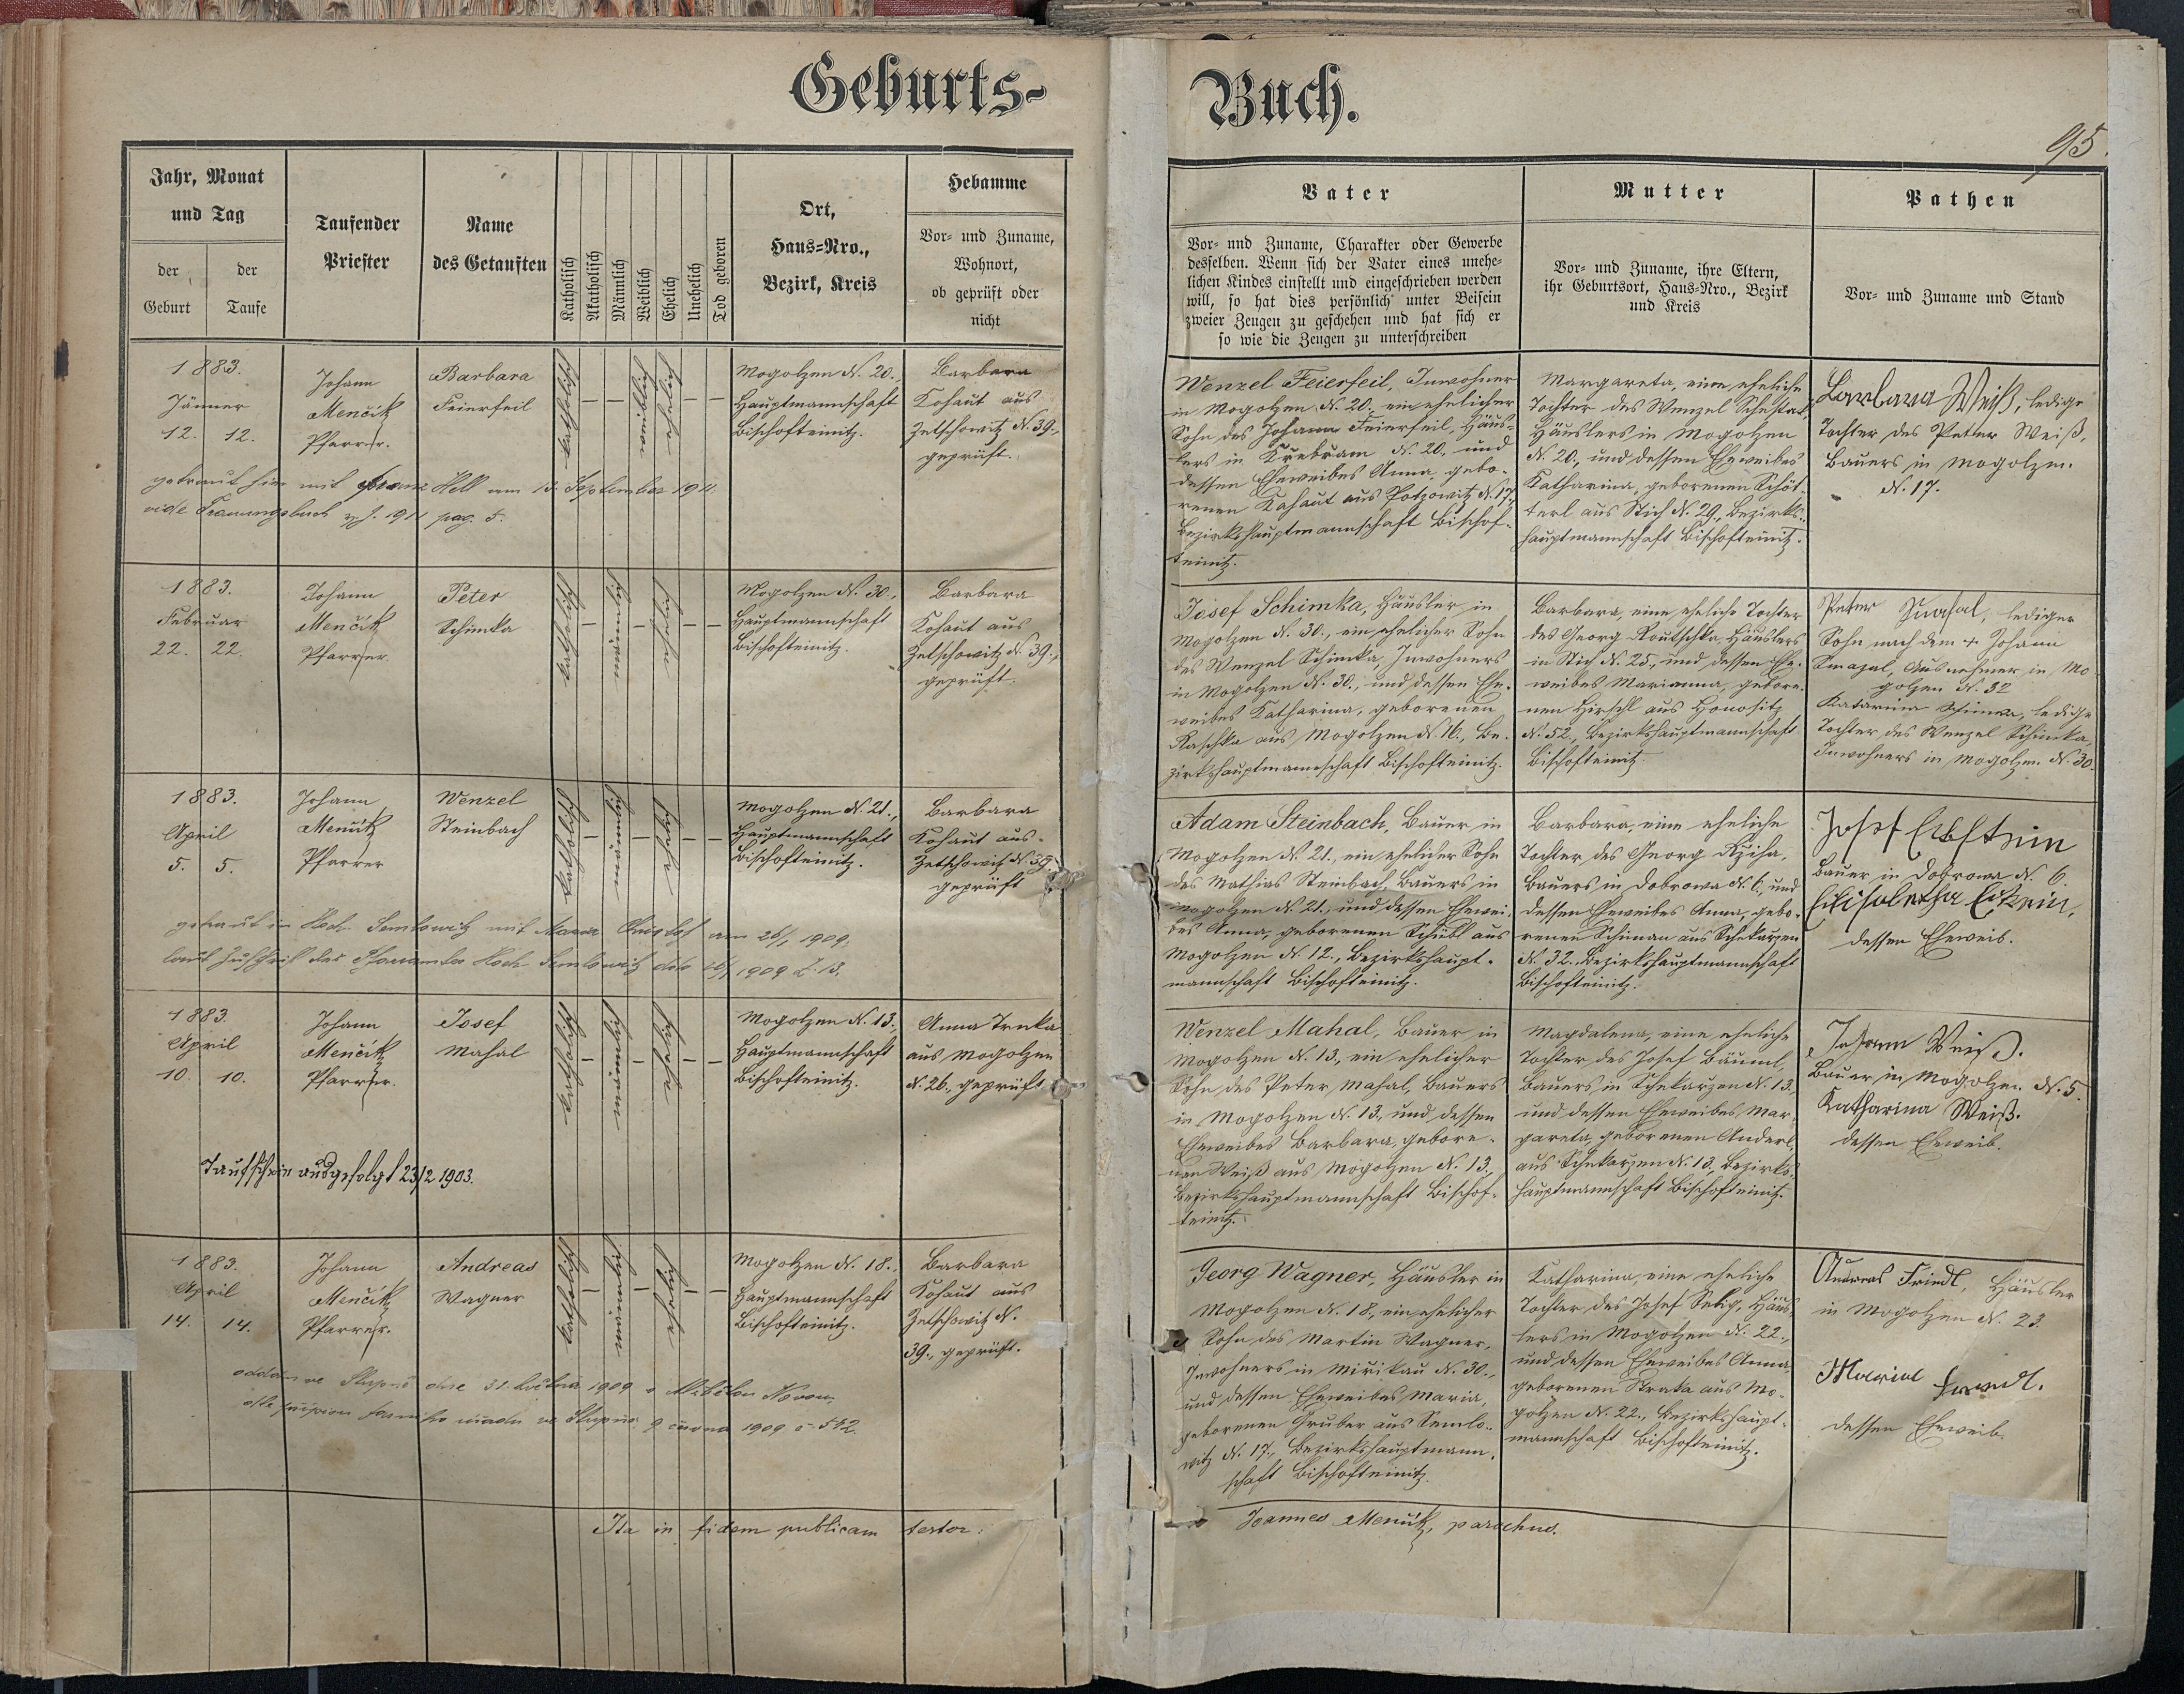 Geburts-
Buch.
95.
Jahr, Monat
und Tag
der
Geburt
der
Taufe
Taufender
Priester
Name
des Getauften
Katholisch
Akatholisch
Männlich
Weiblich
Ehelich
Unehelich
Tod geboren
Ort,
Haus-Nro.,
Bezirk, Kreis
Hebamme
Vor- und Zuname,
Wohnort,
ob geprüft oder
nicht
Vater
Vor- und Zuname, Charakter oder Gewerbe
desselben. Wenn sich der Vater eines unehe-
lichen Kindes einstellt und eingeschrieben werden
will, so hat dies persönlich unter Beisein
zweier Zeugen zu geschehen und hat sich er
so wie die Zeugen zu unterschreiben
Mutter
Vor- und Zuname, ihre Eltern,
ihr Geburtsort, Haus-Nro., Bezirk
und Kreis
Pathen
Vor- und Zuname und Stand
1883.
Jänner
12. 12.
Johann
Menčik
Pfarrer.
Barbara
Feierfeil
katholisch
weiblich
ehelich
Mogolzen N. 20.,
Hauptmannschaft
Bischofteinitz.
Barbara
Kohaut aus
Zetschowitz N. 39.,
geprüft.
Wenzel Feierfeil, Inwohner
in Mogolzen N. 20., ein ehelicher
Sohn des Johann Feierfeil, Häus-
lers in Křebřam N. 20. und
dessen Eheweibes Anna, gebo-
renen Kahaut aus Potzowitz N. 17.,
Bezirkshauptmannschaft Bischof-
teinitz.
Margareta, eine eheliche
Tochter des Wenzel
Häuslers in Mogolzen
N. 20., und dessen Eheweibes
Katharina, geborenen Schöt-
terl aus Stich N. 29., Bezirks-
hauptmannschaft Bischofteinitz.
Barbara Weiß, ledige
Tochter des Peter Weiß,
Bauers in Mogolzen
N. 17.
getraut hier mit Franz Hell am 13. September 1911
vide Trauungsbuch v. J. 1911 pag. 5.
1883.
Februar
22. 22.
Johann
Menčik
Pfarrer
Peter
Schimka
katholisch
männlich
ehelich
Mogolzen N. 30.,
Hauptmannschaft
Bischofteinitz.
Barbara
Kohaut aus
Zetschowitz N. 39.,
geprüft.
Josef Schimka, Häusler in
Mogolzen N. 30., ein ehelicher Sohn
des Wenzel Schimka, Inwohners
in Mogolzen N. 30., und dessen Ehe-
weibes Katharina, geborenen
Raschka aus Mogolzen N. 16., Be-
zirkshauptmannschaft Bischofteinitz.
Barbara, eine eheliche Tochter
des Georg Routschka, Häuslers
in Stich N. 25., und dessen Ehe-
weibes Marianna, gebore-
nen Hirschl aus Honositz
N. 52., Bezirkshauptmannschaft
Bischofteinitz.
Peter lediger
Sohn nach dem + Johann
Smazal, Ausnehmer in Mo
golzen N. 32
Katarina Schimka, ledige
Tochter des Wenzel Schimka,
Inwohners in Mogolzen N. 30.
1883.
April
5. 5.
Johann
Menčik
Pfarrer
Wenzel
Steinbach
katholisch
männlich
ehelich
Mogolzen N. 21.,
Hauptmannschaft
Bischofteinitz.
Barbara
Kohaut aus
Zetschowitz N. 39.,
geprüft
Adam Steinbach, Bauer in
Mogolzen N. 21., ein ehelicher Sohn
des Mathias Steinbach, Bauers in
Mogolzen N. 21., und dessen Ehewei-
bes Anna, geborenen Schübl aus
Mogolzen N. 12., Bezirkshaupt-
mannschaft Bischofteinitz.
Barbara, eine eheliche
Tochter des Georg Rziha,
Bauers in Dobrowa N. 6., und
dessen Eheweibes Anna, gebo-
renen Schiman aus Schekarzen
N. 32., Bezirkshauptmannschaft
Bischofteinitz.
Josef
Bauer in Dobrowa N. 6.
dessen Eheweib.
getraut in Hoch Semlowitz mit am 26/1 1909.
laut Zuschrift des Pfarramtes Hoch Semlowitz dto 26/1 1909 Z. 13.
1883.
April
10. 10.
Johann
Menčik
Pfarrer.
Josef
Mahal
katholisch
männlich
ehelich
Mogolzen N. 13.,
Hauptmannschaft
Bischofteinitz.
Anna Trnka
aus Mogolzen
N. 26. geprüft
Wenzel Mahal, Bauer in
Mogolzen N. 13., ein ehelicher
Sohn des Peter Mahal, Bauers
in Mogolzen N. 13., und dessen
Eheweibes Barbara, gebore-
nen Weiß aus Mogolzen N. 13.,
Bezirkshauptmannschaft Bischof-
teinitz.
Magdalena, eine eheliche
Tochter des Josef Bäuml,
Bauers in Schekarzen N. 13.,
und dessen Eheweibes Mar-
gareta, geborenen Anderl,
aus Schekarzen N. 13., Bezirks-
hauptmannschaft Bischofteinitz.
Johann Weiß.
Bauer in Mogolzen N. 5.
Katharina Weiß.
dessen Eheweib.
Taufschein ausgefolgt 23/2 1903.
1883.
April
14. 14.
Johann
Menčik
Pfarrer.
Andreas
Wagner
katholisch
männlich
ehelich
Mogolzen N. 18.,
Hauptmannschaft
Bischofteinitz.
Barbara
Kohaut aus
Zetschowitz N.
39., geprüft.
Georg Wagner, Häusler in
Mogolzen N. 18., ein ehelicher
Sohn des Martin Wagner,
Inwohners in Mirikau N. 30.,
und dessen Eheweibes Maria,
geborenen Gruber aus Semlo-
witz N. 17., Bezirkshauptmann-
schaft Bischofteinitz.
Katharina, eine eheliche
Tochter des Josef Selig, Häus-
lers in Mogolzen N. 22.,
und dessen Eheweibes Anna,
geborenen Straka aus Mo-
golzen N. 22., Bezirkshaupt-
mannschaft Bischofteinitz.
Andreas Friedl, Häusler
in Mogolzen N. 23.
Maria Friedl.
dessen Eheweib.
oddán ve Stupně dne 31. května 1909 s
farního úřadu ve Stupně 9 června 1909 č 542.
Ita in fidem publicam testor:
Joannes Menčik, parochus.